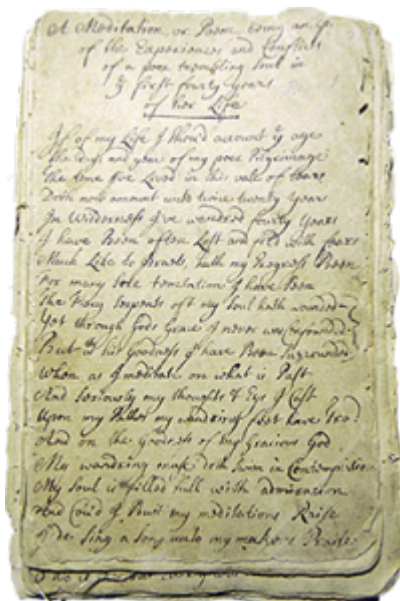 A Meditation, or Poem being an Ep
of the Experiences and Conflicts
of a poor trembling Soul in
yᵉ first fourty years
of her Life
If of my Life I should account yᵉ age
The days and year of my poor Pilgrimage
The time I've Lived in this vale of tears
Doth now amount unto twice twenty years
In Wilderness I've wandred fourty Years
I have Been often Lost and fild with fears
Much Like to Israels, hath my Progress Been
For many Sore temtations I have Seen
The Fiery Serpents oft my Soul hath wounded
Yet through Gods Grace I never was
But wᵗʰ his Goodness I have Been Surrounded
When as I meditate on what is Past
And Seriously my thoughts & Eys I Cast
Upon my Pathes my wandring feet have Trod
And on the Goodness of my Gracious God
My wandring muse doth Swim in Contemplation
My Soul is filled full with admiration
And Cou'd I Suit my meditations Raise
I'de Sing a Song unto my makers Praise